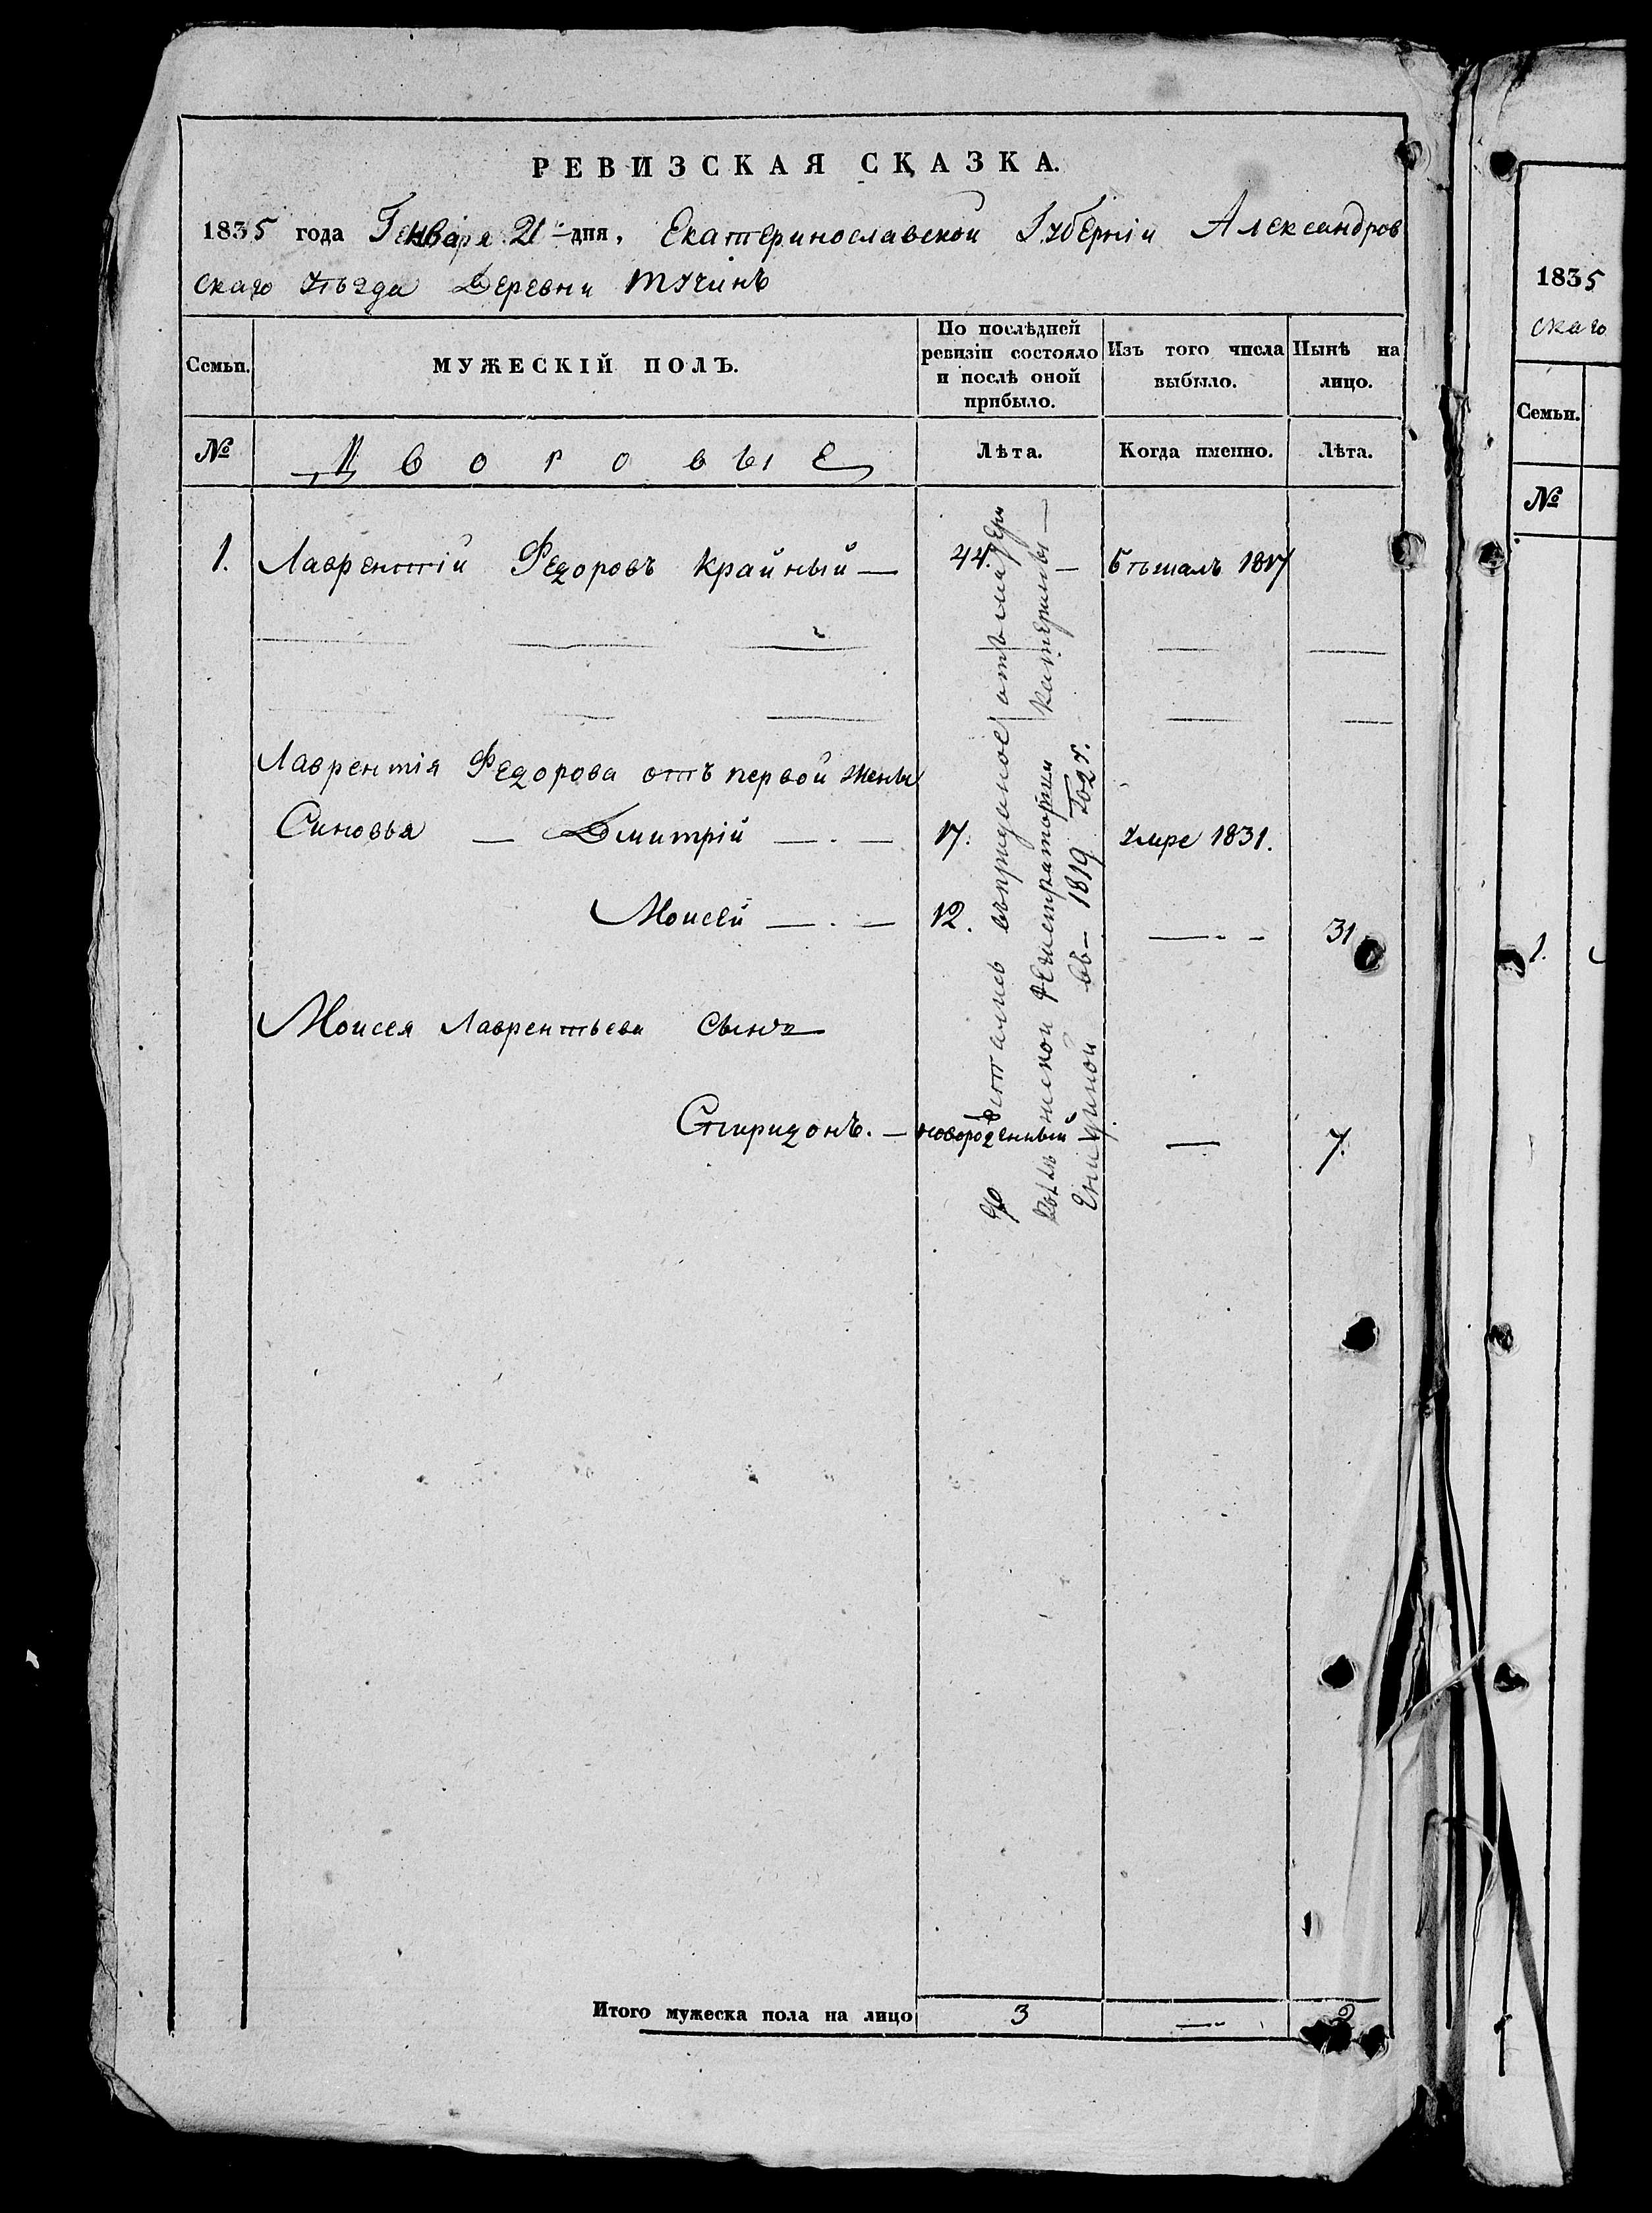 РЕВИЗСКАЯ СКАЗКА.
1835 года Генваря 21 дня, Екатеринославской Губерніи Александров
скаго Уѣзда Деревни Тучинъ
Семьи.
МУЖЕСКІЙ ПОЛЪ.
По послѣдней ревизіи состояло и послѣ оной прибыло.
Изъ того числа выбыло.
Нынѣ на лицо.
№
Дворовые
Лѣта.
Когда именно.
Лѣта.
1. Лаврентій Федоровъ Крайный — 44. — бѣжалъ 1817
Лаврентія Федорова отъ первой жены
Синовья — Дмитрій — 17. умре 1831.
Моисей — 12. — 31
Моисея Лаврентьева сынъ
Спиридонъ. — новорожденный — 7.
достались въ приданое отъ
регистраторши Катерины —
въ 1819 Году.
Итого мужеска пола на лицо 3 — 2
1835
скаго
Семьи.
№
1.